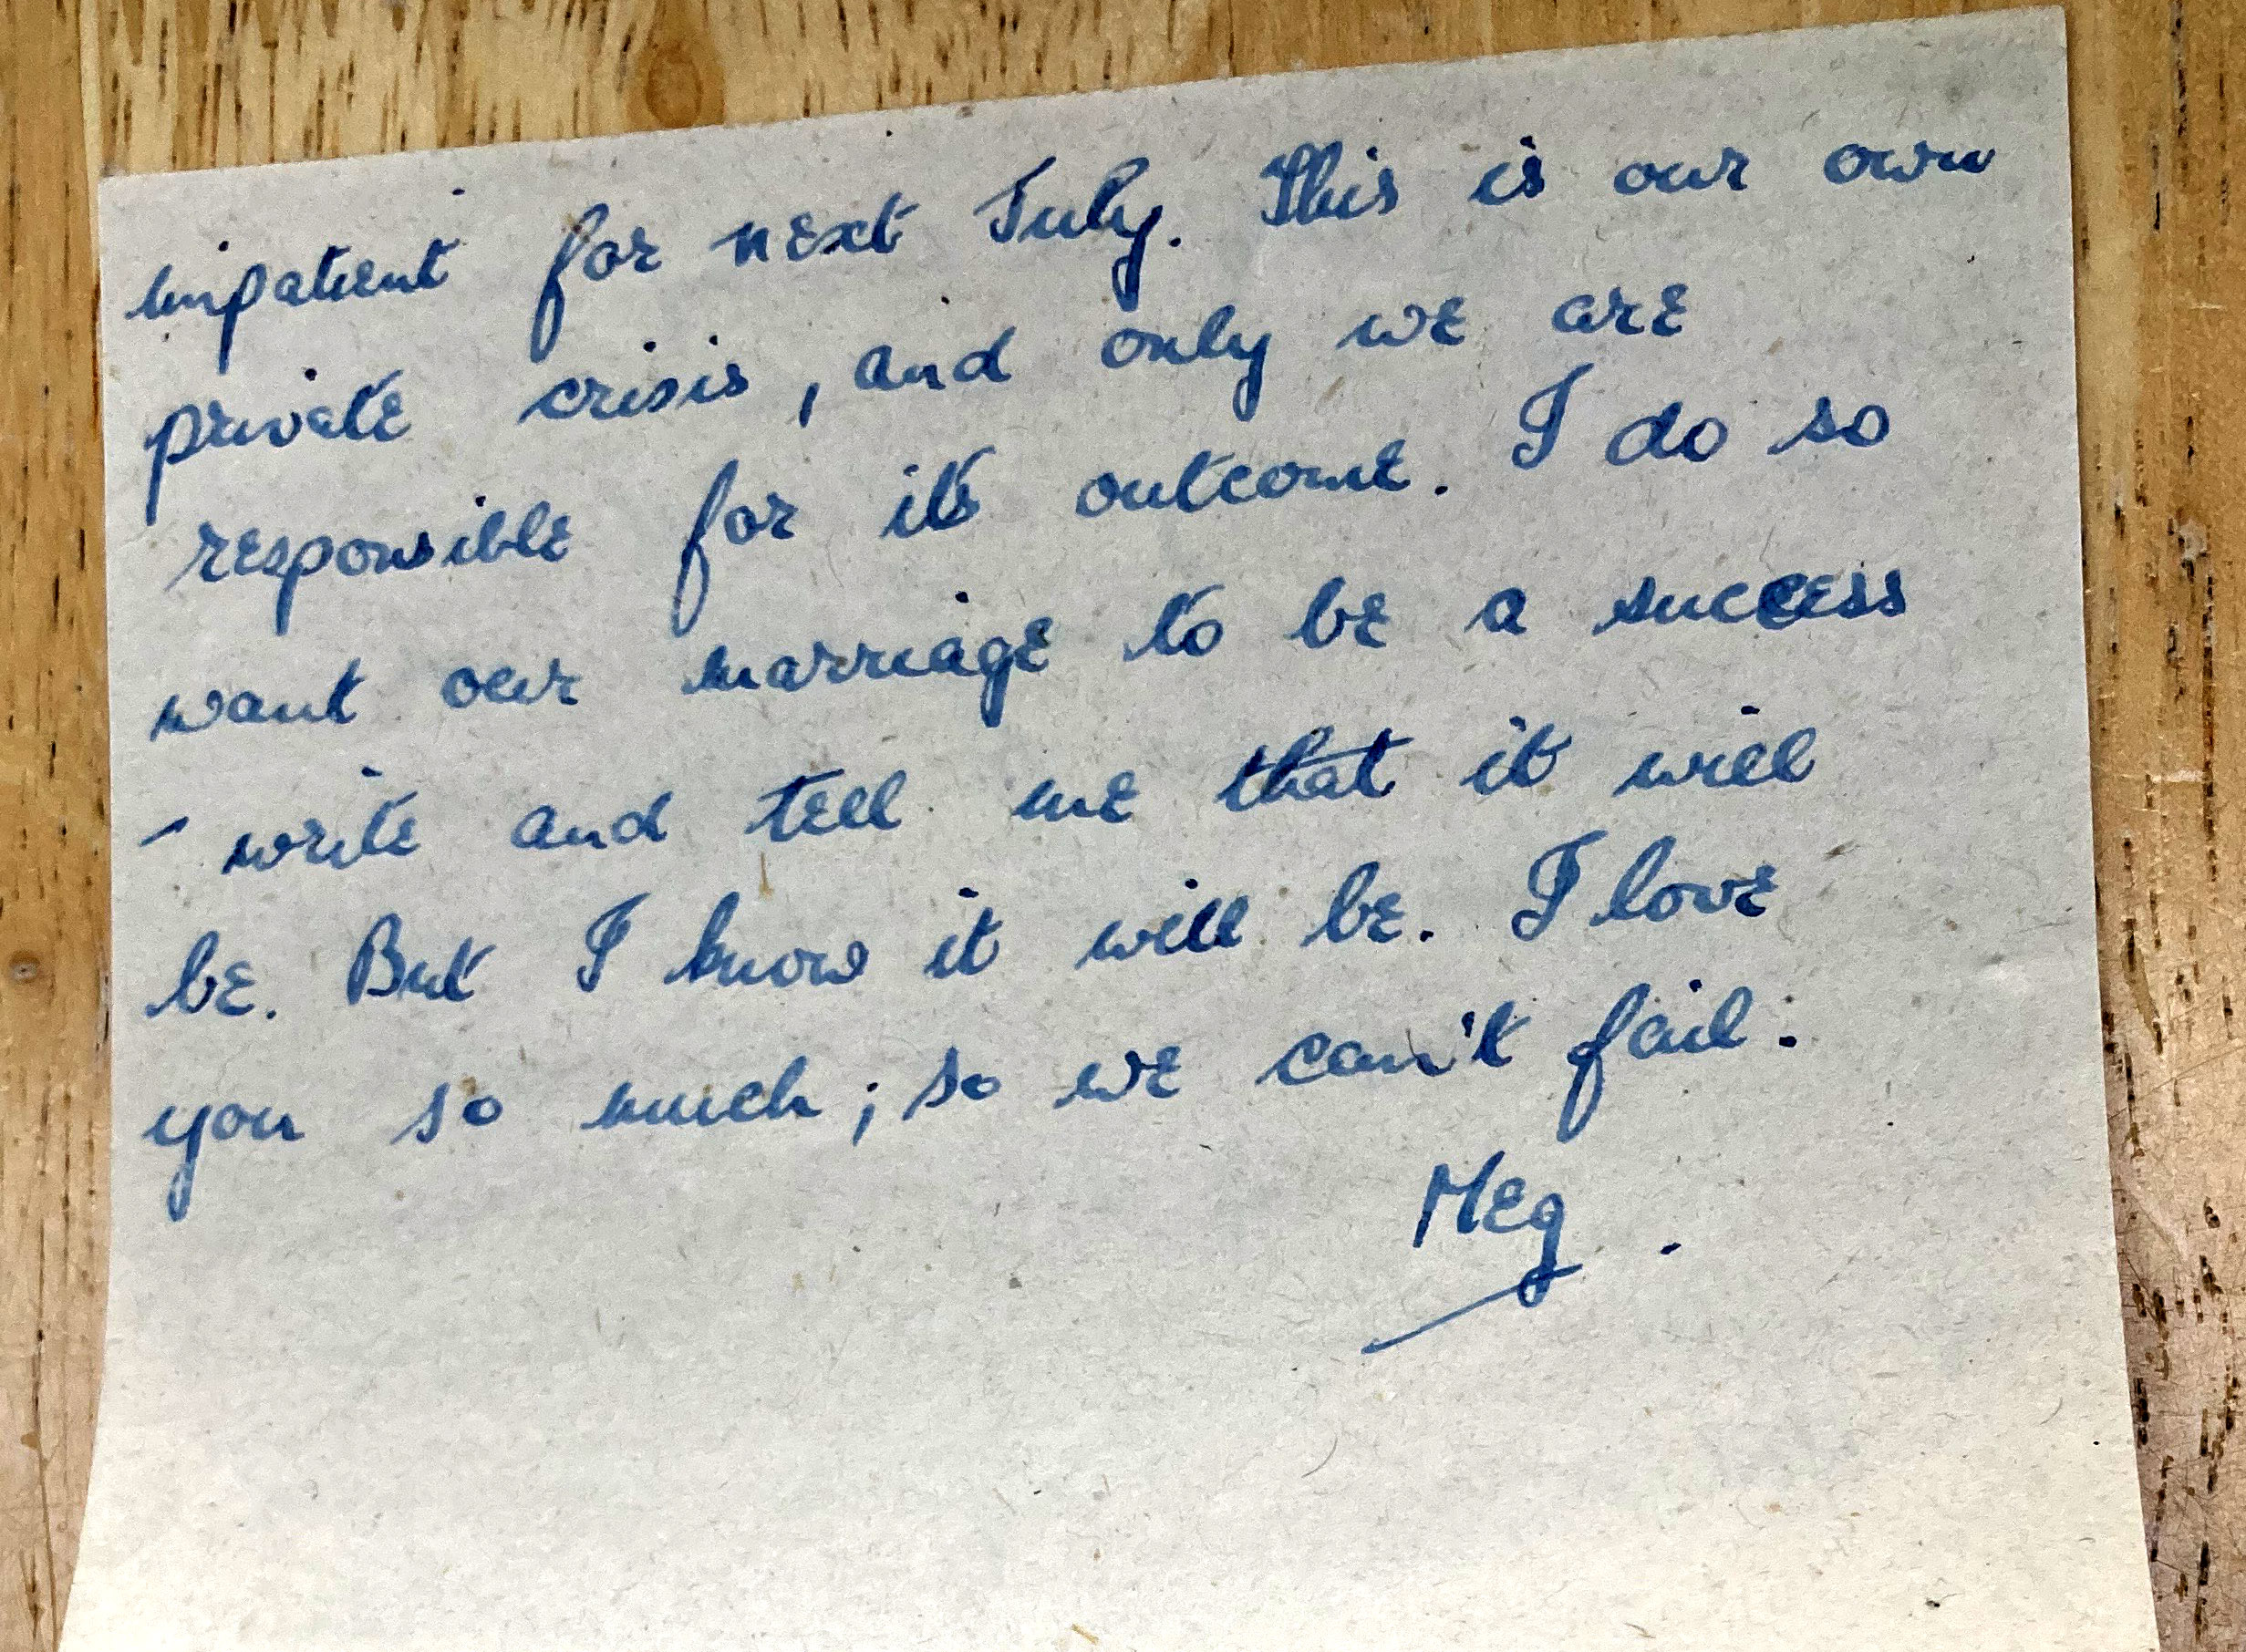 impatient for next July. This is our own
private crisis, and only we are
responsible for it's outcome. I do so
want our marriage to be a success
- write and tell me that it will
be. But I know it will be. I love
you so much; so we can't fail.
Meg.